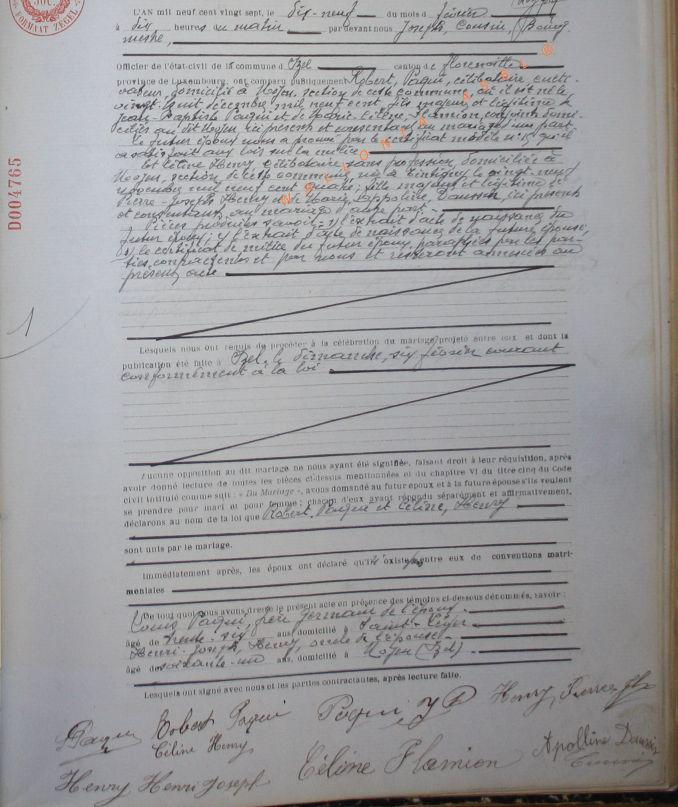 L'AN mil neuf cent vingt sept, le dix-neuf du mois d février
à dix heures du matin par devant nous Joseph, Cousin, Bourg
mestre,
Officier de l'état-civil de la commune d Izel canton de Florenville
province de Luxembourg, ont comparu publiquement Robert, Paquï, célibataire, culti-
vateur, domicilié à Moyen, section de cette commune, où il est né le
vingt-huit décembre, mil neuf cent, fils majeur et légitime de
Jean-Baptiste Paquï et de Marie-Céline, Flamion, conjoints domi-
ciliés au dit Moyen, ici présents et consentant au mariage, d'une part.
Le futur époux nous a prouvé par le certificat modèle qu'il
a satisfait aux lois sur la milice.
Et Céline Henry, célibataire, sans profession, domiciliée à
Moyen, section de cette commune, née à Tintigny le vingt-neuf
novembre mil neuf cent quatre; fille majeure et légitime de
Pierre-Joseph Henry et de Marie, Appoline, Daussin, ici présents
et consentant au mariage, d'autre part
Pièces produites savoir: 1) l'extrait d'acte de naissance du
futur époux; 2) l'extrait d'acte de naissance de la future épouse,
3) le certificat de milice du futur époux, paraphés par les par-
ties contractantes et par nous et resteront annexées au
présent acte
D004765
1
Lesquels nous ont requis de procéder à la célébration du mariage projeté entre eux et dont la
publication été faite à Izel, le dimanche, six février courant
conformément à la loi
Aucune opposition au dit mariage ne nous ayant été signifiée, faisant droit à leur réquisition, après
avoir donné lecture de toutes les pièces ci-dessus mentionnées et du chapitre VI du titre cinq du Code
civil intitulé comme suit : « Du Mariage », avons demandé au futur époux et à la future épouse s'ils veulent
se prendre pour mari et pour femme ; chacun d'eux ayant répondu séparément et affirmativement,
déclarons au nom de la loi que Robert, Paquï et Céline, Henry
sont unis par le mariage.
Immédiatement après, les époux ont déclaré qu'il existe entre eux de conventions matri-
moniales
De tout quoi nous avons dressé le présent acte en présence des témoins ci-dessous dénommés, savoir :
Louis Paquï, frère germain de l'époux
âgé de trente-six ans domicilié à Saint-Léger
Henri-Joseph, Henry, oncle de l'épouse
âgé de soixante-un ans, domicilié à Moyen (Izel)
Lesquels ont signé avec nous et les parties contractantes, après lecture faite.
LPaquï Robert Paquï Paquï J B Henry, Pierre Jh
Céline Henry
Henry Henri Joseph Céline Flamion Apolline Daussin